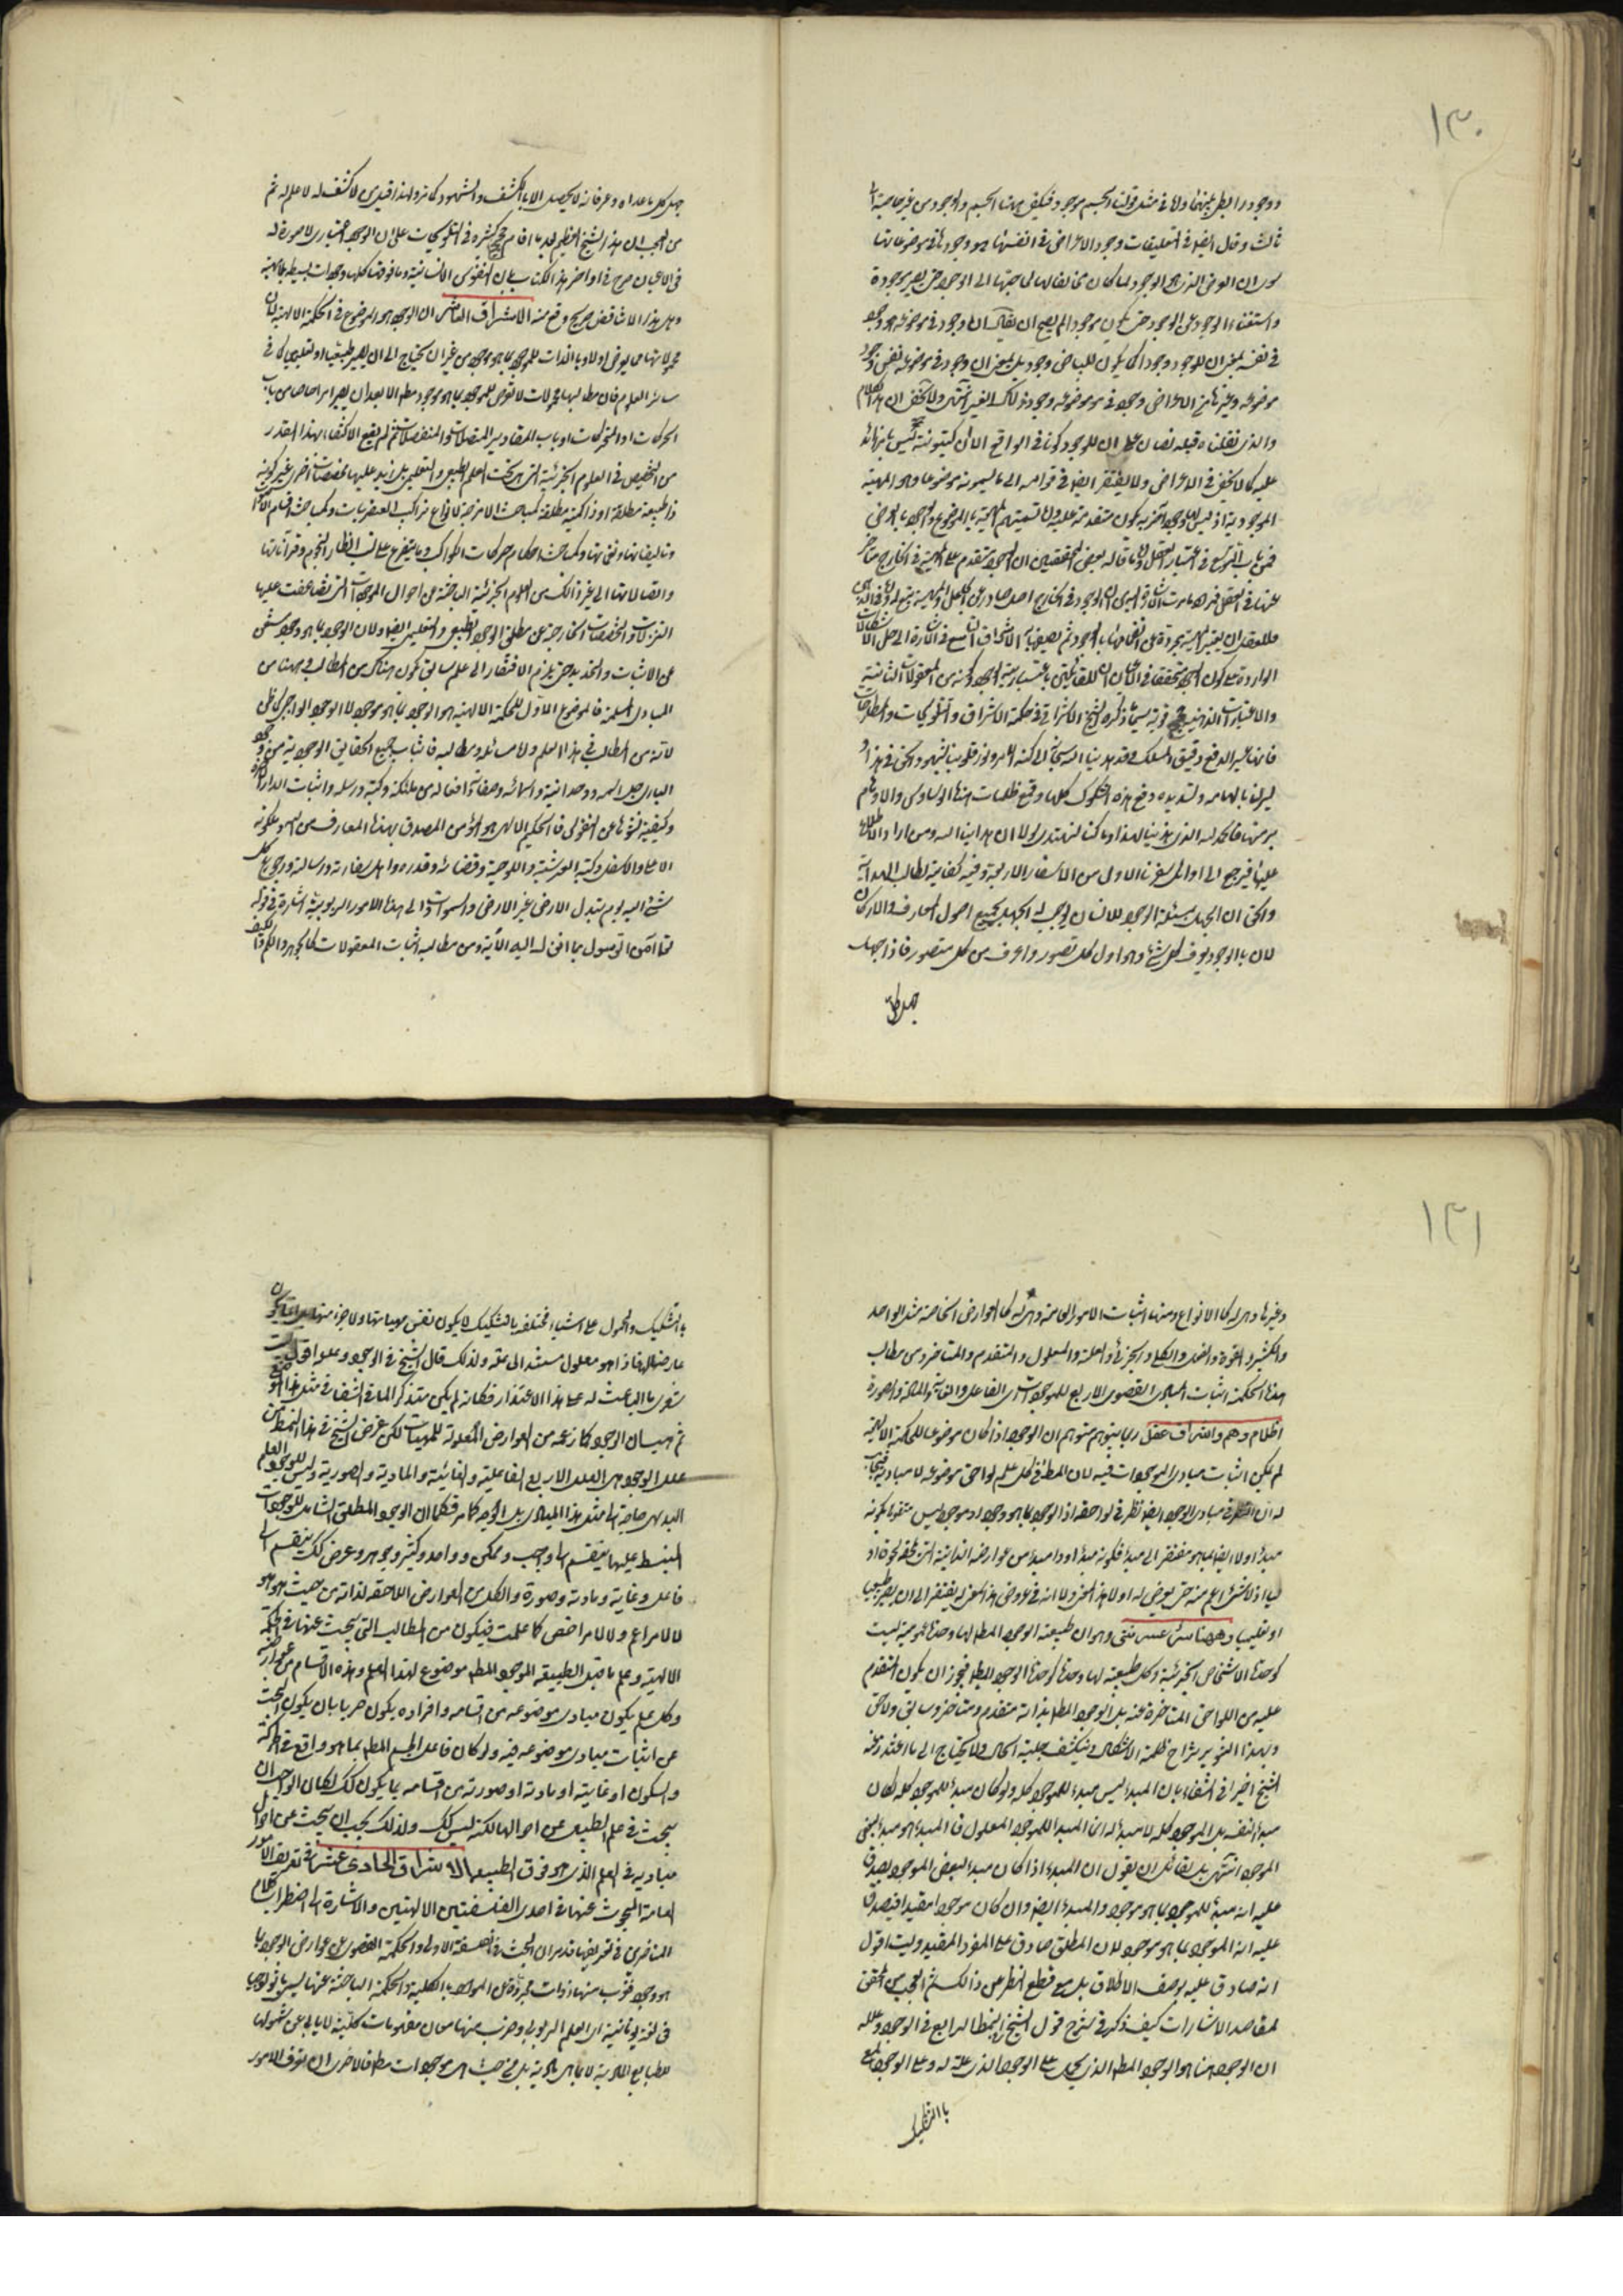 ١٣٠
ووجود رابط بينهما ولا في مثل قولنا الجسم موجود فكيف بهذا الجسم والوجود من غير حاجة الى
ثالث وقال ايضا في التعليقات وجود الاعراض في انفسها هو وجودها في موضوعاتها
سوى ان العرض الذي هو الوجود لما كان مخالفا لها لحاجتها الى الوجود حتى يصير موجودة
واستغناء الوجود عن الوجود حتى يكون موجودا لم يصح ان يقال ان وجوده في موضوعه هو وجوده
في نفسه بمعنى ان للوجود وجودا كما يكون للبياض وجود بل بمعنى ان وجوده في موضوعه نفس وجود
موضوعه وغيره من الاعراض وجوده في موضوعه وجود ذلك الغير انتهى ولا يخفى ان هذا الكلام
والذي نقلناه قبله نصان على ان للوجود كونا في الواقع
عليه كما لا يخفى في الاعراض ولا يفتقر ايضا في قوامه الى ما ليسمونه موضوعا وهو المهية
الموجودة به اذ ليس للوجود آخر به يكون متقدمة عليه
فمن باب التوسع في اعتبار العقل وما قاله بعض المحققين ان الوجود متقدم على المهية في الخارج متأخر
عنها في العقل
الواردة على كون الوجود متحققا في الاعيان
والاعتبارات الذهنية قوية سيما ما ذكره الشيخ الاشراقي في حكمة الاشراق والتلويحات والمطارحات
فانها عسير الدفع دقيق المسلك وقد هدينا الله سبحانه الى كنه الامر ونور قلوبنا بشهود الحق في هذا و
يسر لنا بالهامه وتسديده دفع هذه الشكوك كلها وقمع ظلمات هذه الوساوس والاوهام
برمتها فالحمد لله الذي هدينا لهذا وما كنا لنهتدي لولا ان هدانا الله ومن اراد الاطلاع
عليها فليرجع الى اوائل سفرنا الاول من الاسفار الاربعة وفيه كفاية لطالب الهداية
والحق ان الجهل بمسئلة الوجود للانسان يوجب له الجهل بجميع اصول المعارف والاركان
لان بالوجود يعرف كل شئ وهو اول كل تصور واعرف من كل متصور فاذا جهل
جهل كل
جهل كل ما عداه وعرفانه لا يحصل الا بالكشف والشهود كما مر ولهذا قيل من لا كشف له لا علم له ثم
من العجب ان هذا الشيخ العظيم بعد ما اقام حججا كثيرة في التلويحات على ان الوجود اعتباري لا صورة له
في الاعيان صرح في اواخر هذا الكتاب بان النفوس الانسانية وما فوقها كلها وجودات بسيطة بلا مهية
وهل هذا الا تناقض صريح وقع منه الاشراق العاشر ان الوجود هو الموضوع في الحكمة الالهية لان
محمولاتها ما يعرض اولا وبالذات للموجود بما هو موجود من غير ان يحتاج الى ان يصير طبيعيا او تعليميا كما في
سائر العلوم فان مطالبها محمولات لا تعرض للموجود بما هو موجود مطلقا الا بعد ان يصير امرا خاصا من باب
الحركات او المتحركات او باب المقادير المتصلة او المنفصلات ثم لم يقع الاكتفاء بهذا القدر
من التخصيص في العلوم الجزئية التي هي تحت العلم الطبيعي والتعليمي بل زيد عليها تخصصات اخرى غير كونه
ذا طبيعة مطلقة او ذا كمية مطلقة كمباحث الامزجة وانواع تراكيب العنصريات وكمباحث اقسام الالحان
وتاليفاتها ونغماتها وكمباحث احكام حركات الكواكب وما يتفرع على نسب انظار النجوم وقراناتها
واتصالاتها الى غير ذلك من العلوم الجزئية الباحثة عن احوال الموجودات التي تضاعفت عليها
التنزلات والتخصصات الخارجة عن مطلق الوجود الطبيعي والتعليمي ايضا ولان الوجود بما هو وجود مستغن
عن الاثبات والتحديد حتى يلزم الافتقار الى علم سابق يكون هناك من المطالب وهيهنا من
المبادي المسلمة فالموضوع الاول للحكمة الالهية هو الوجود بما هو موجود لا الوجود الواجبي كما ظن
لانه من المطالب في هذا العلم ولا مسائله ومطالبه فاثبات جميع الحقايق الوجودية من وجود
الباري جل اسمه ووحدانيته واسمائه وصفاته وافعاله من ملائكته وكتبه ورسله واثبات الدار الاخرة
وكيفية نشوها عن النفوس فالحكيم الالهي هو المؤمن المصدق بهذه المعارف من الله وملكوته
الاعلى والاسفل وكتبه العرشية واللوحية وقضائه وقدره واهل سفارته ورسالته ورجوع كل
شئ اليه يوم تبدل الارض غير الارض والسموات والى هذه الامور الربوبية اشارة في قوله
تعالى آمن الرسول بما انزل اليه الآية ومن مطالبه اثبات المعقولات كالجوهر والكم والكيف
١٣١
وغيرها وهي له كالانواع ومنها اثبات الامور العامة وهي له كالعوارض الخاصة مثل الواحد
والكثير والقوة والفعل والكلي والجزئي والعلة والمعلول والمتقدم والمتاخر ومن مطالب
هذه الحكمة اثبات المبادي القصوى الاربع للموجودات من الفاعل والغاية والمادة والصورة
اظلام وهم واشراق عقل ربما يتوهم متوهم ان الوجود اذا كان موضوعا للحكمة الالهية
لم يكن اثبات مبادي الموجودات فيه لان المطلوب في كل علم لواحق موضوعه لا مباديه فيجاب
له ان النظر في مبادي الوجود ايضا نظر في لواحقه اذ الوجود بما هو وجود او موجود ليس متقوما بكونه
مبدء ولا ايضا بما هو مفتقر الى مبدء فكونه مبدء او ذا مبدء من عوارضه الذاتية
اذ لا شئ اعم منه حتى يعرض له اولا هذا المعنى ولا انه في عروض هذا المعنى له يفتقر الى ان يصير طبيعيا
او تعليميا وهيهنا سر عرشي وهو ان طبيعة الوجود المطلق لها وحدة عمومية ليست
كوحدة الاشخاص الجزئية وكل طبيعة لها وحدة كوحدة الوجود المطلق فيجوز ان يكون المتقدم
عليه من اللواحق المتاخرة عنه بل الوجود المطلق بذاته متقدم ومتاخر وسابق ولاحق
وبهذا التنوير يزاح ظلمة الاشكال وينكشف جلية الحال ولا يحتاج الى ما اعتذر عنه
الشيخ اخيرا في الشفاء بان المبدء ليس مبدء للموجود كله ولو كان مبدء للموجود كله لكان
مبدء لنفسه بل الموجود كله لا مبدء له انما المبدء للموجود المعلول فالمبدء هو مبدء لبعض
الموجود انتهى بل لقائل ان يقول ان المبدء اذا كان مبدء لبعض الموجود يصدق
عليه انه مبدء للموجود بما هو موجود والمبدء ايضا وان كان موجودا مقيدا فيصدق
عليه انه الموجود بما هو موجود لان المطلق صادق على الفرد المقيد وليت اقول
انه صادق عليه بوصف الاطلاق بل مع قطع النظر عن ذلك ثم العجب من المحقق
لمقاصد الاشارات كيف ذكر في شرح قول الشيخ النمط الرابع في الوجود وعلله
ان الوجود هيهنا هو الوجود المطلق الذي يحمل على الوجود الذي لا علة له وعلى الوجود المعلول
بالتشكيك
بالتشكيك والمحمول على اشياء مختلفة بالتشكيك لا يكون نفس مهياتها ولا جزء منها بل انما يكون
عارضا لها فاذا هو معلول مستند الى علة ولذلك قال الشيخ في الوجود وعلله اقول ليت
شعري ما الباعث له على هذا الاعتذار فكانه لم يكن متذكرا لما في الشفا في مثل هذا الموضع
ثم هب ان الوجود كما زعمه من العوارض المعلولة للمهيات لكن غرض الشيخ في هذا النمط من
علل الوجود هي العلل الاربع الفاعلية والغائية والمادية والصورية وليس للوجود العام
البديهي حاجة الى مثل هذا المبادي بل الوجه كما مر فكما ان الوجود المطلق الشامل للموجودات
المنبسط عليها ينقسم الى واجب وممكن وواحد وكثير وجوهر وعرض كذلك ينقسم الى
فاعل وغاية ومادة وصورة والكل من العوارض اللاحقة لذاته من حيث هو هو
لا لامر اعم ولا لامر اخص كما علمت فيكون من المطالب التي يبحث عنها في الحكمة
الالهية وعلم ما قبل الطبيعة الموجود المطلق موضوع لهذا العلم وهذه الاقسام من عوارضه
وكل علم يكون مبادي موضوعه من اقسامه وافراده يكون حريا بان يكون البحث
عن اثبات مبادي موضوعه فيه ولو كان فاعل الجسم المطلق بما هو واقع في الحركة
والسكون او غايته او مادته او صورته من اقسامه بما يكون كذلك لكان الواجب ان
يبحث في علم الطبيعي عن احوالها لكنه ليس كذلك ولذلك يجب ان يبحث عن احوال
مباديه في العلم الذي هو فوق الطبيعة الاشراق الحادي عشر في تعريف الامور
العامة المبحوث عنها في احدى الفلسفتين الالهيتين والاشارة الى اضطراب كلام
المتاخرين في تعريفها قد مر ان البحث في الفلسفة الاولى والحكمة القصوى عن عوارض الوجود بما
هو وجود فضرب منها ذوات مجردة عن المواد بالكلية والحكمة الباحثة عنها ليسمى باثولوجيا
في لغة يونانية اي العلم الربوبي وضرب منها معان ومفهومات كلية لا يأبى عن شمولها
للطبايع المادية لا بما هي مادية بل من حيث هي موجودات مطلقا فالاحرى ان يعرف الامور